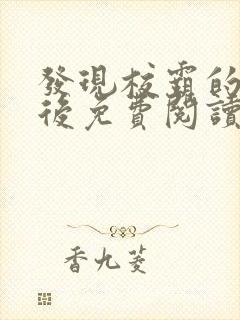 發現校霸的
後免費閱讀
香九菱